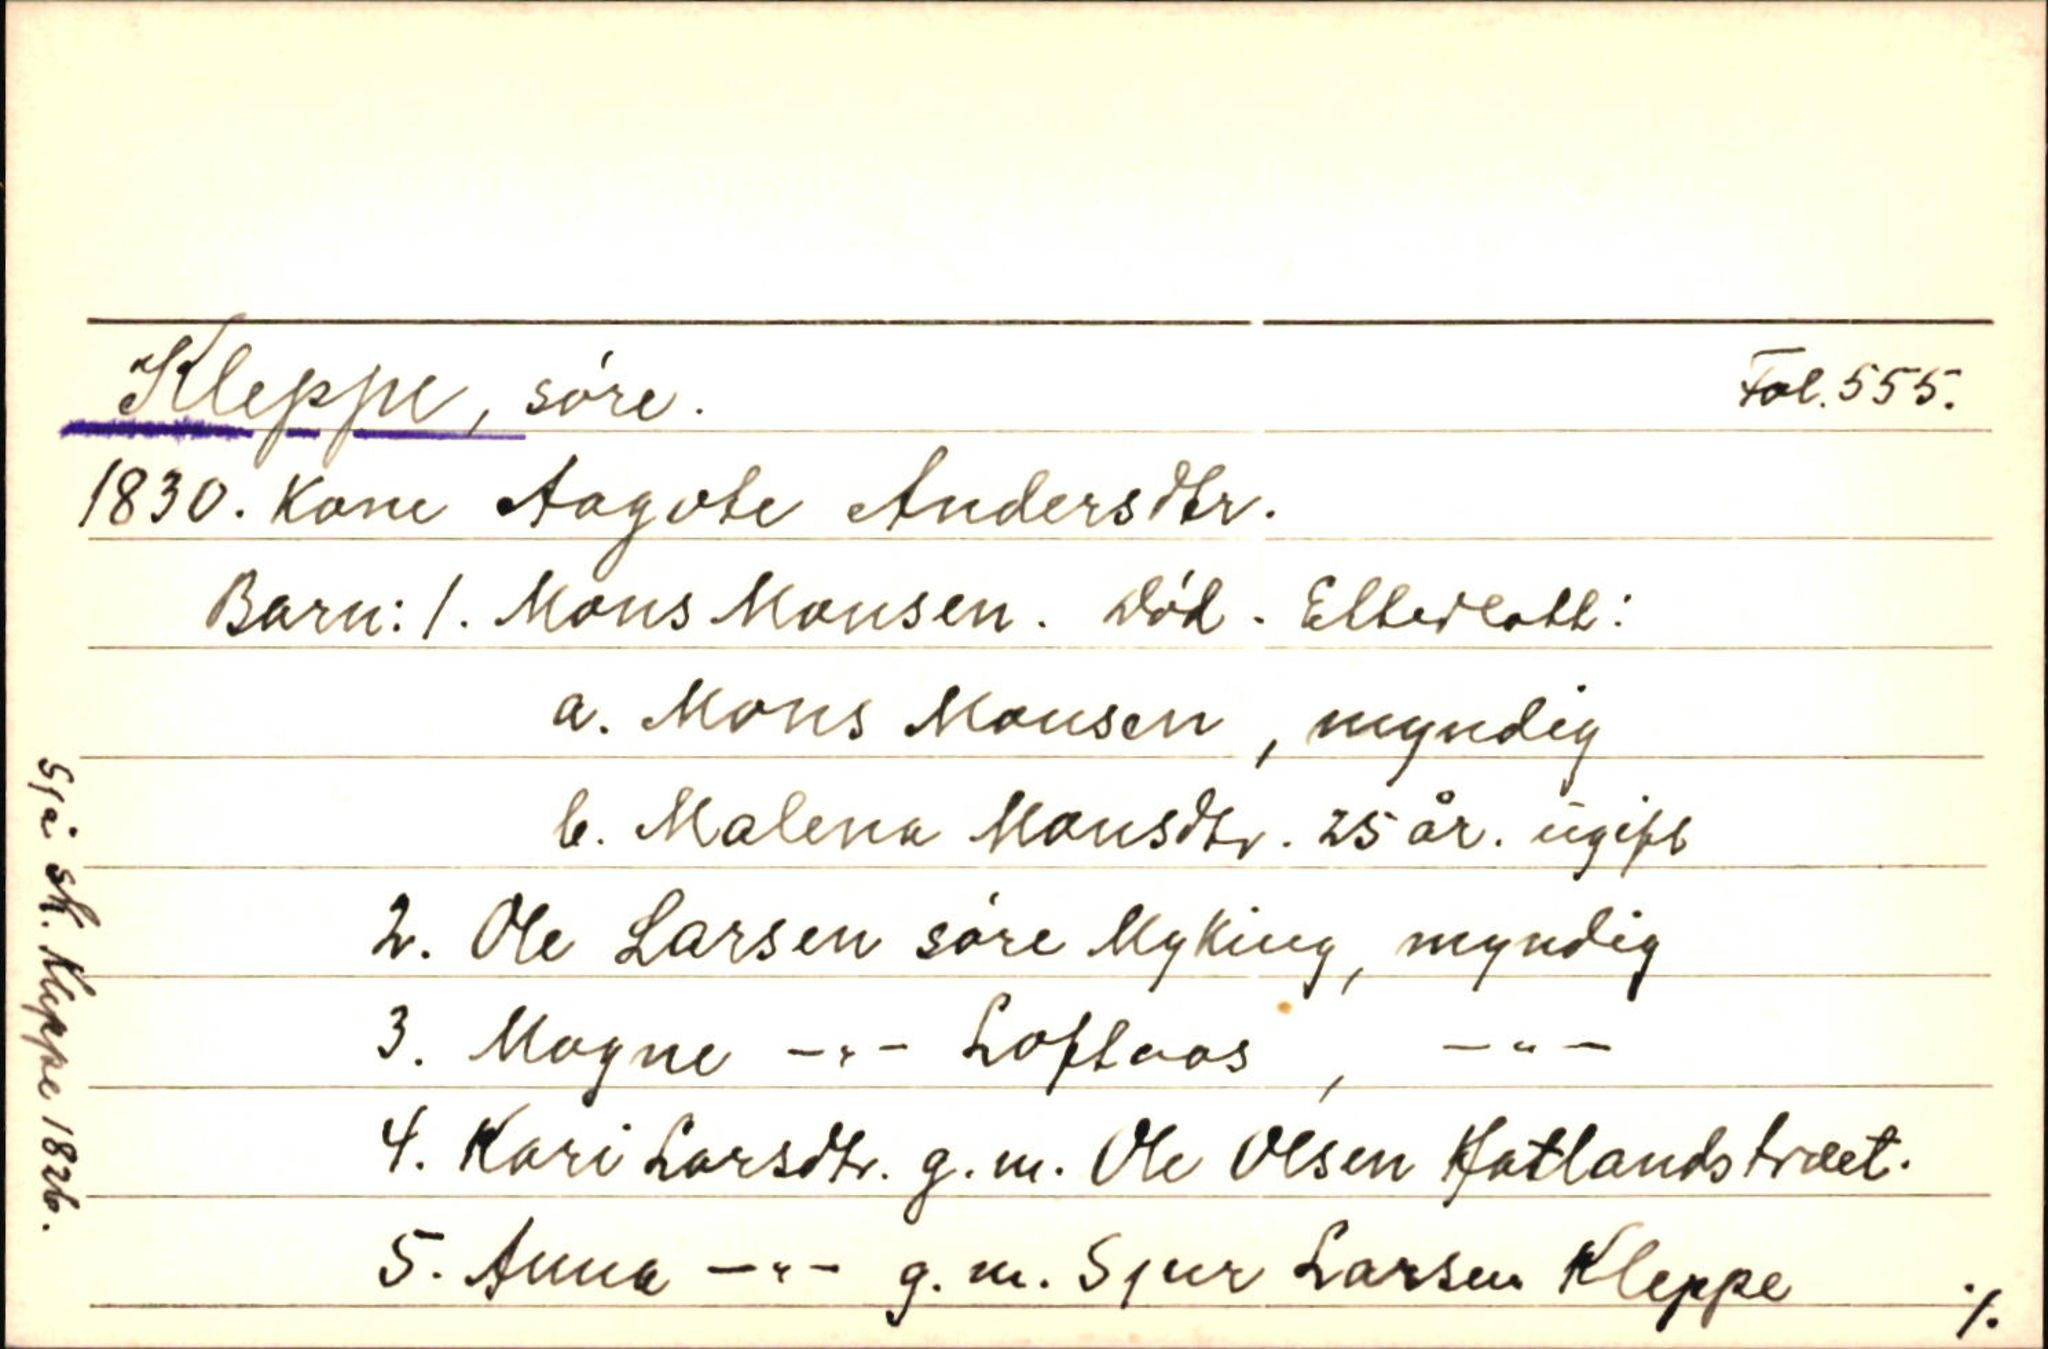 Kleppe, søre. Fol. 555.
1830. Kone Aagote Andersdtr.
Barn: 1. Mons Monsen. død. Etterlatt:
a. Mons Monsen, myndig
b. Malena Monsdtr. 25 år. ugift
2. Ole Larsen søre Myking, myndig
3. Mogne -"- Loftaas, -"-
4. Kari Larsdtr. g. m. Ole Olsen Hatlandstræet.
5. Anna -"- g. m. Sjur Larsen Kleppe ./.
Sjå sk. Kleppe 1826.